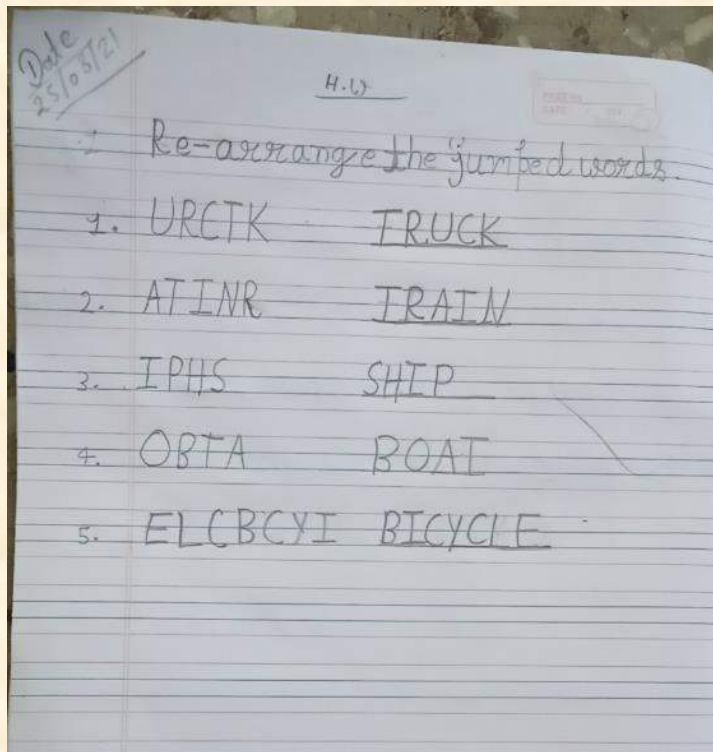 Date
25/05/21
H.W
Re-arrange the jumped words.
1. URCTK TRUCK
2. ATINR TRAIN
3. IPHS SHIP
4. OBTA BOAT
5. ELCBCYI BICYCLE